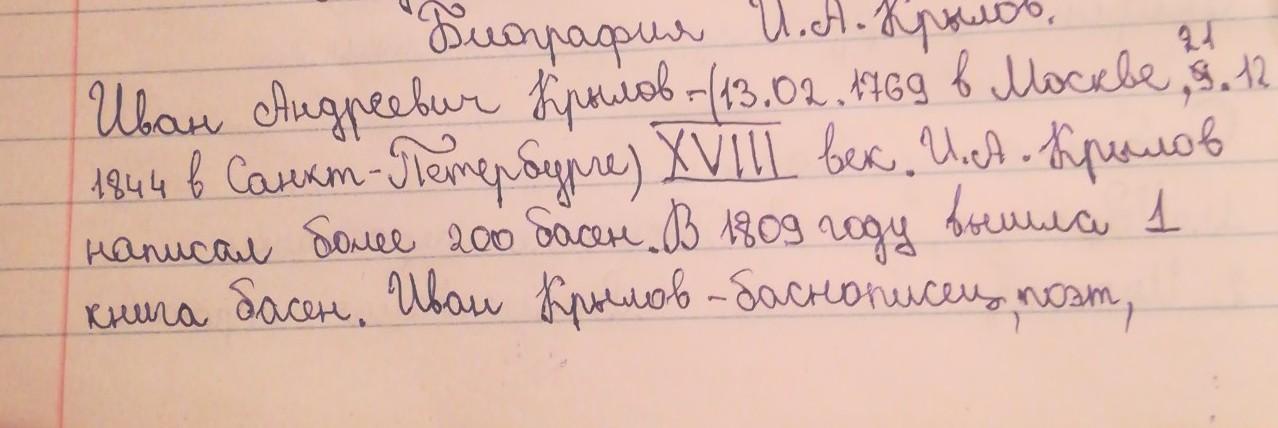 Биография И.А.Крылов.
Иван Андреевич Крылов-(13.02.1769 в Москве, 21.12
1844 в Санкт-Петербурге) XVIII век. И.А.Крылов
написал более 200 басен. В 1809 году вышла 1
книга басен. Иван Крылов-баснописец, поэт,